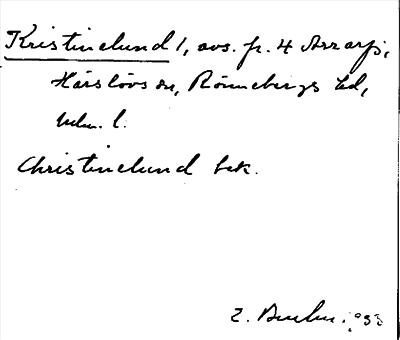 Kristinelund 1, avs. fr. 4 Asarp,
Härslövs sn, Rönnebergs hd,
Mlm. l.
Christinelund bek.